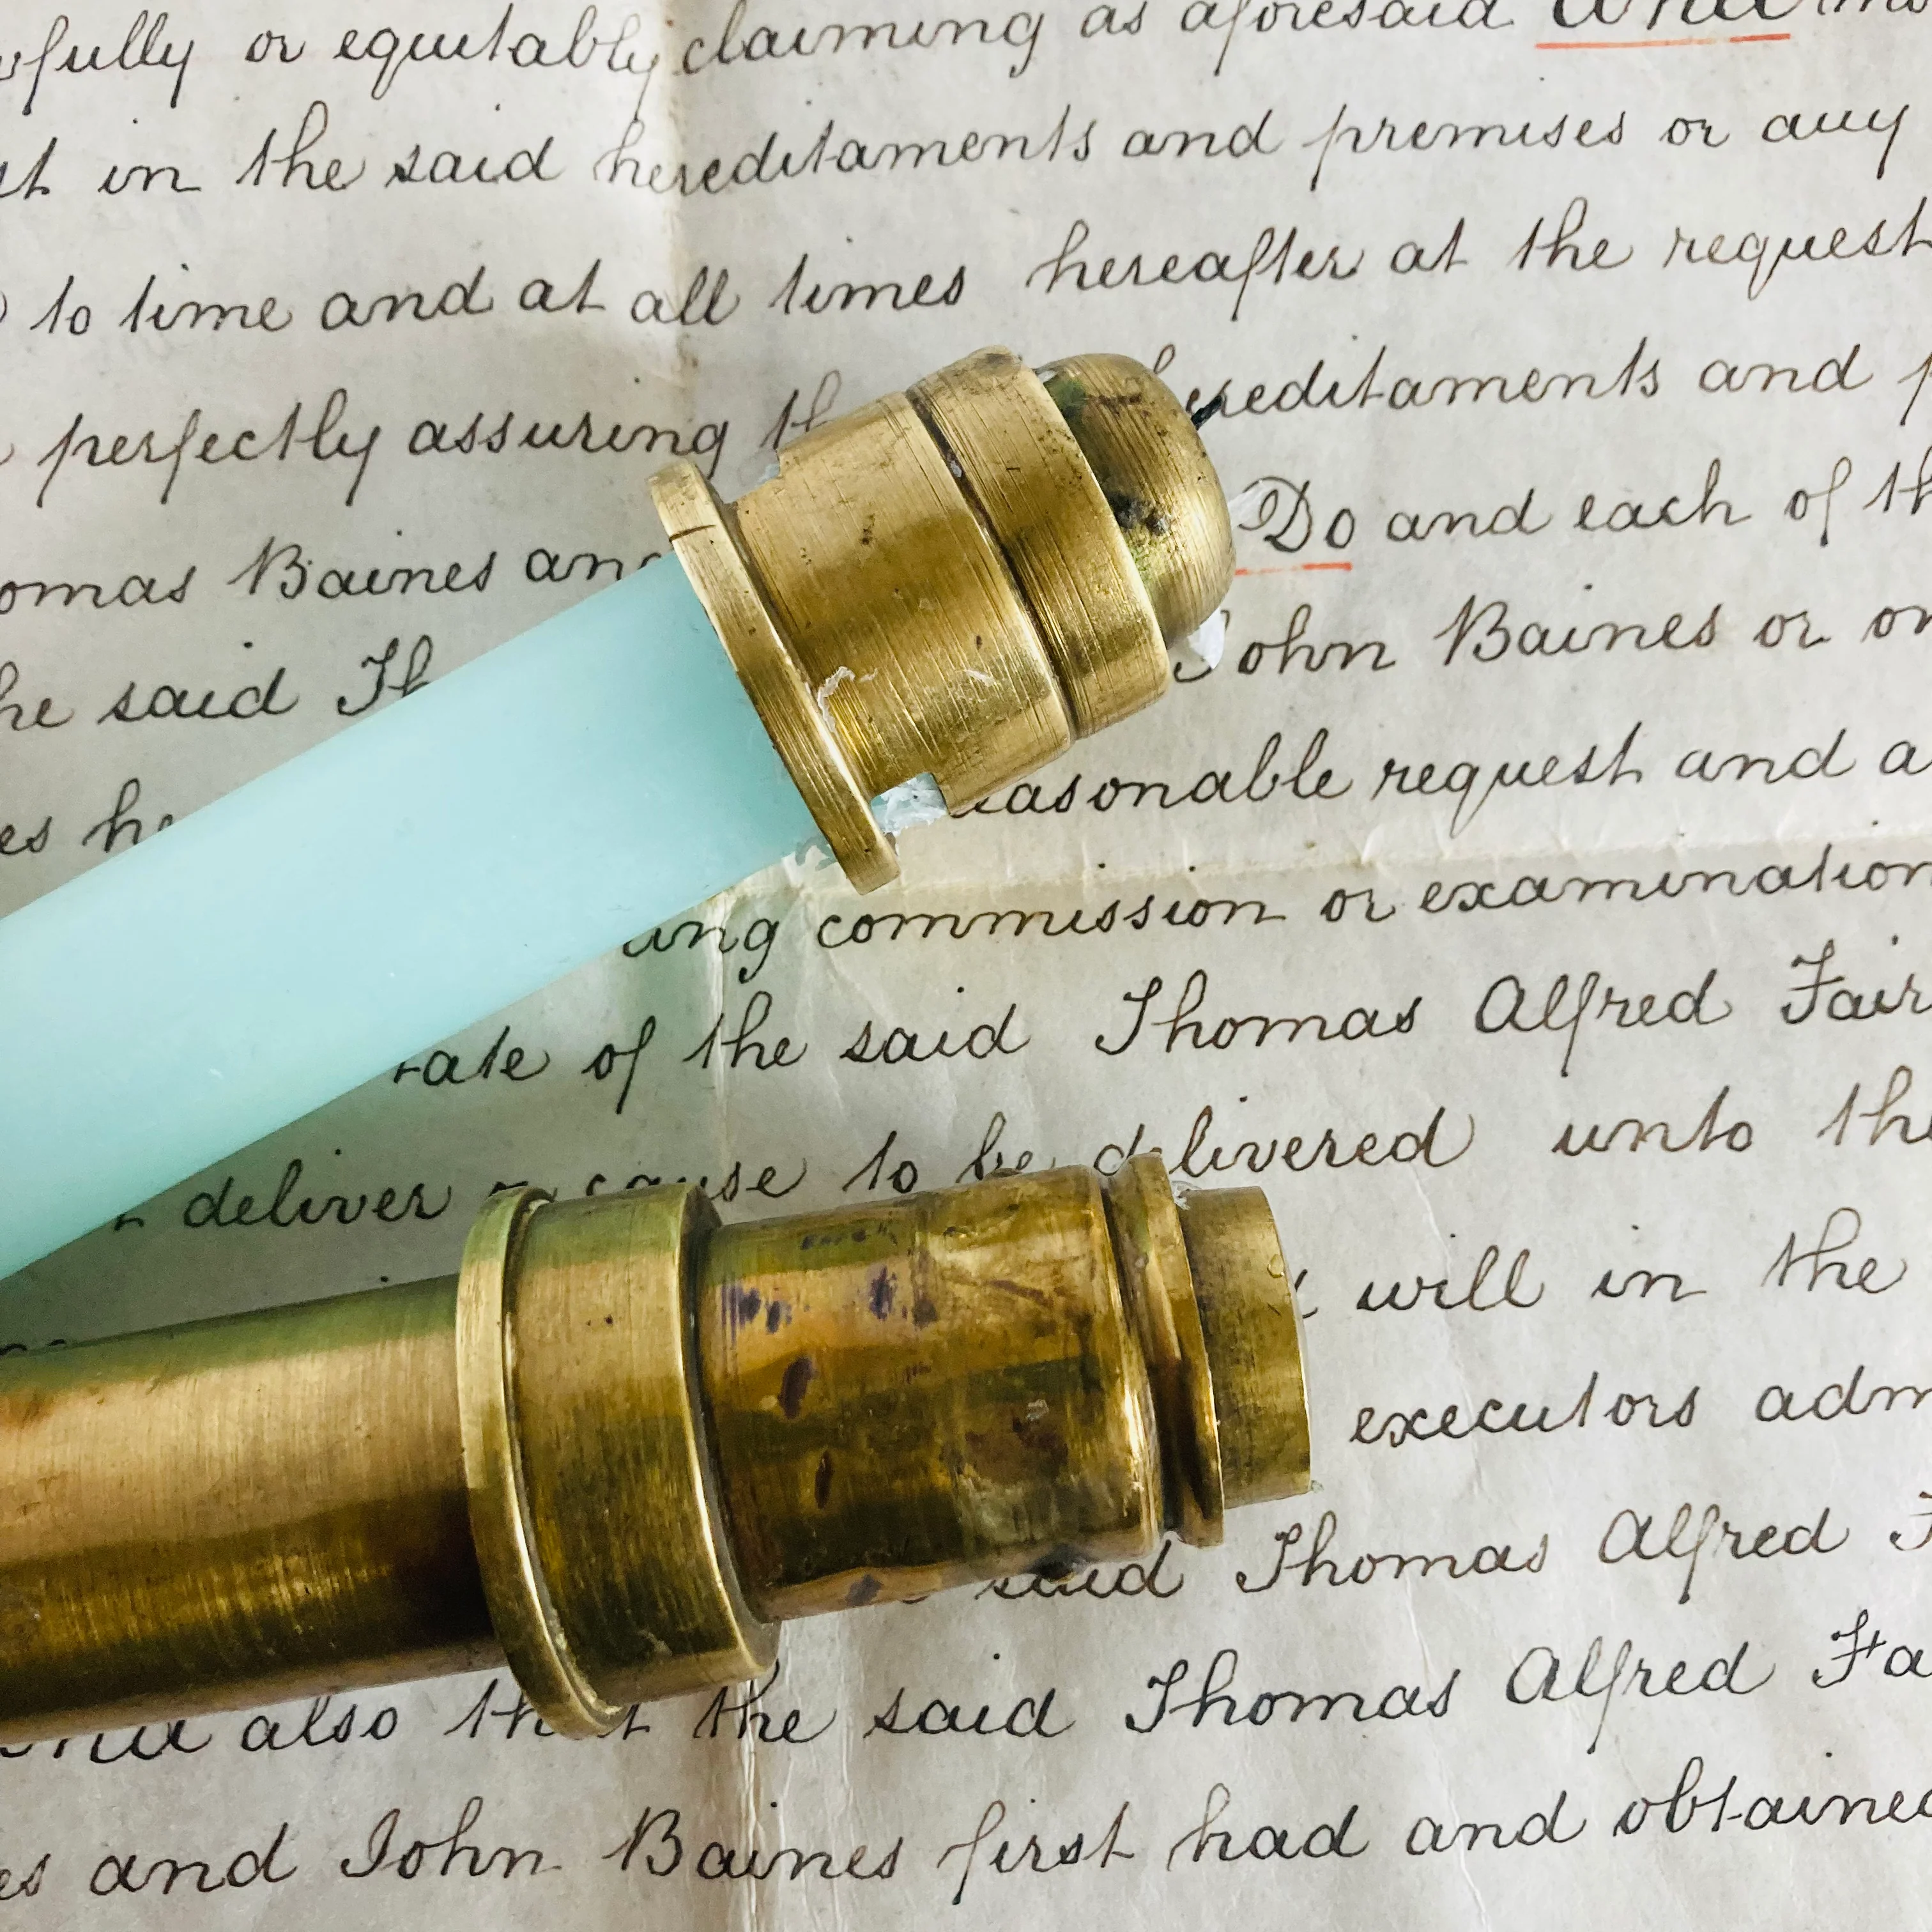 or equitably claiming as aforesaid And
in the said hereditaments and premises or any
to time and at all times hereafter at the request
perfectly assuring hereditaments and
Baines and Do and each of
said John Baines or
reasonable request and
commission or examination
of the said Thomas Alfred
deliver cause to be delivered unto the
will in the
executors
said Thomas Alfred
also that the said Thomas Alfred
and John Baines first had and obtained